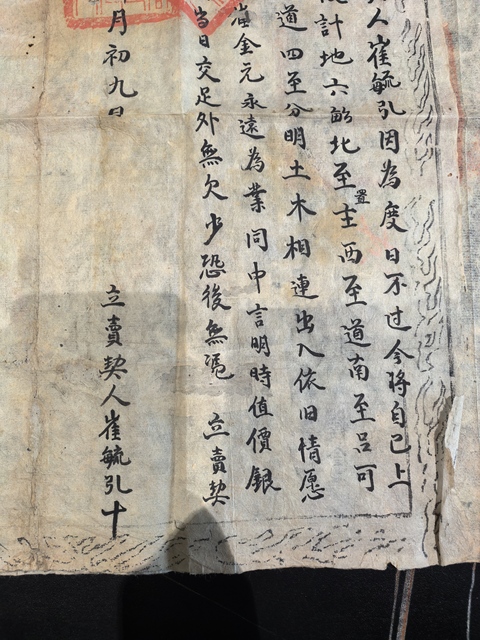 人崔毓弘因為度日不过今將自己上
計地六畝北至置主西至道南至吕可
道四至分明土木相連出入依旧情愿
金元永遠為業同中言明時值價銀
當日交足外無欠少恐後無憑 立賣契
月初九日 立賣契人崔毓弘十